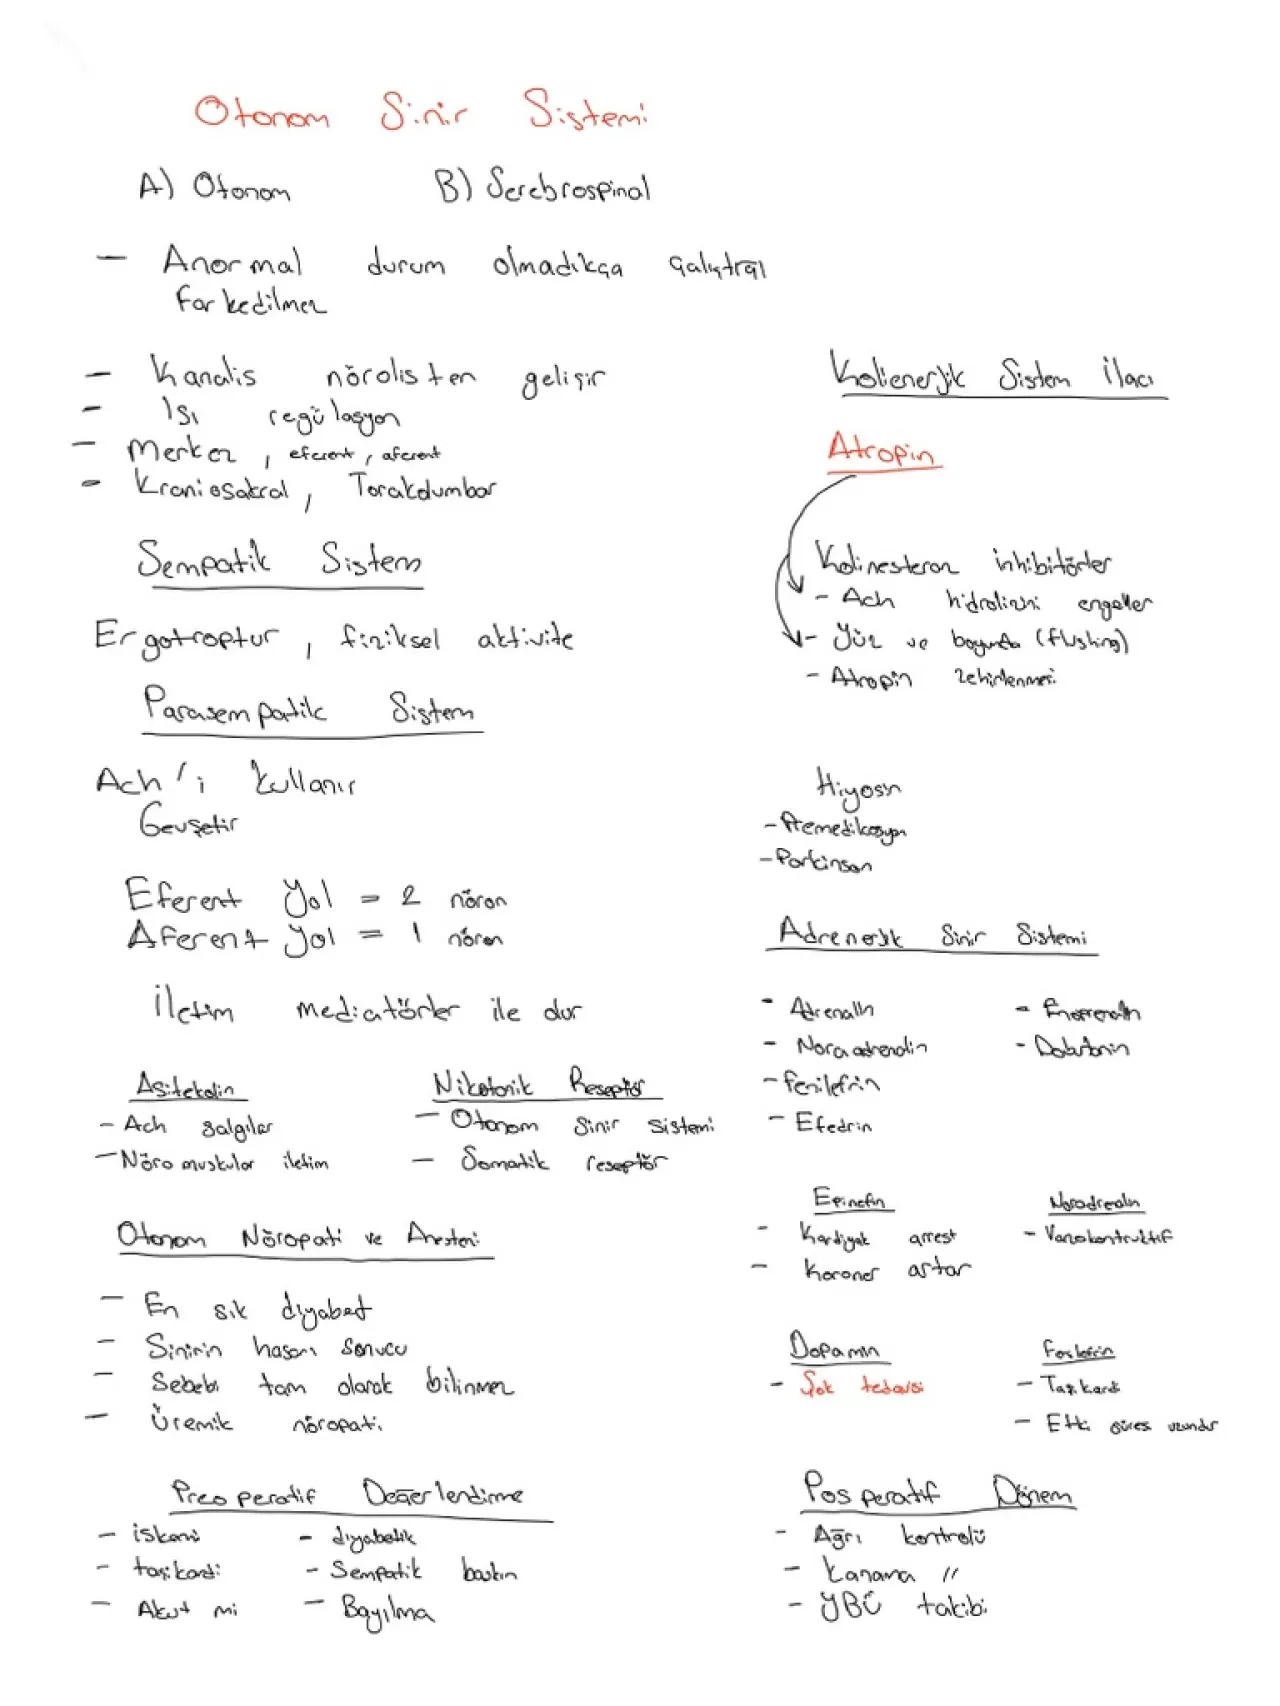 Otonom Sinir Sistemi
A) Otonom B) Serebrospinal
- Anormal durum olmadıkça
farkedilmez
- Kanalis nörolisten gelişir
- Isı regülasyon
- Merkez, eferent, aferent
- Kraniosakral, Torakolumbar
Sempatik Sistem
Ergotroptur, fiziksel aktivite
Parasempatik Sistem
Ach'i kullanır
Gevşetir
Eferent Yol = 2 nöron
Aferent yol = 1 nöron
İletim mediatörler ile olur
Asitekolin
- Ach salgılar
- Nöromuskular iletim
Nikotonik Reseptör
- Otonom Sinir Sistemi
- Somatik reseptör
Otonom Nöropati ve Anestezi
- En sık diyabet
- Sinirin hasarı sonucu
- Sebebi tam olarak bilinmez
- Üremik nöropati
Preoperatif Değerlendirme
- iskemi - diyabetik
- taşikardi - Sempatik baskın
- Akut mi - Bayılma
Kolienerjik Sistem İlacı
Atropin
Kolinesteraz inhibitörler
- Ach hidrolizini engeller
- Yüz ve boyunda (flushing)
- Atropin zehirlenmesi
Hiyosin
- Premedikasyon
- Parkinson
Adrenerjik Sinir Sistemi
- Adrenalin
- Noraadrenalin - Dobutamin
- Fenilefrin
- Efedrin
Epinefin
- Kardiyak arrest
- Koroner artar
Noradrenalin
- Vazokontruktif
Dopamin
- Şok tedavisi
- Taşikardi
- Etki süresi uzundur
Posperatif Dönem
- Ağrı kontrolü
- Kanama "
- YBÜ takibi